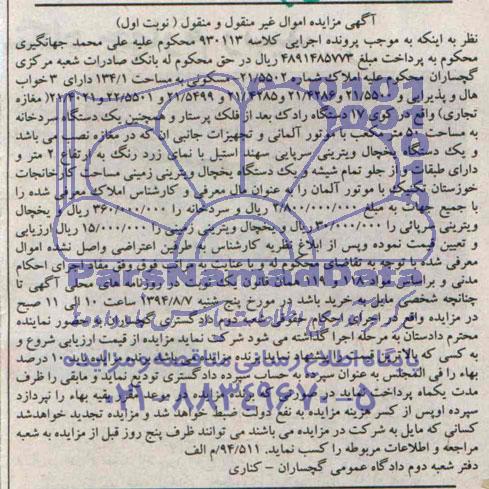 آگهی مزایده اموال غیر منقول و منقول ( نوبت اول)
نظر به اینکه به موجب پرونده اجرایی کلاسه ۹۳۰۱۱۳ محکوم علیه علی محمد جهانگیری
محکوم به پرداخت مبلغ ۴۸۹۱۴۸۵۷۷۳ ریال در حق محکوم له بانک صادرات شعبه مرکزی
گچساران محکوم علیه املاک شماره ۲۱/۵۵۰۲ مسکونی به مساحت ۱۳۴/۱ دارای ۳ خواب
هال و پذیرایی و ۲۱/۵۵۰۰ و ۲۱/۴۲۸۶ و ۲۱/۴۲۸۵ و ۲۱/۵۴۹۹ و ۲۲/۵۵۰۱ و ( مغازه
تجاری) واقع در کوی ۱۷ دستگاه رادک بعد از فلک پرستار و همچنین یک دستگاه سردخانه
به مساحت ۵۰ متر مکعب با موتور آلمانی و تجهیزات جانبی آن که در مغازه نصب می باشد
و یک دستگاه یخچال ویترینی سرپایی سهند استیل با نمای زرد رنگ به ارتفاع ۲ متر و
دارای طبقات و از جلو تمام شیشه و یک دستگاه یخچال ویترینی زمینی مساحت کارخانجات
خوزستان تکنیک با موتور آلمان را به عنوان مال معرفی و کارشناس املاک معرفی شده را
با جمیع جهات به مبلغ ۲/۸۰۰/۰۰۰/۰۰۰ ریال و سردخانه را ۳۶۰/۰۰۰/۰۰۰ ریال و یخچال
ویترینی سرپائی را ۳۰/۰۰۰/۰۰۰ ریال و یخچال ویترینی زمینی را ۱۵/۰۰۰/۰۰۰ ریال ارزیابی
و تعیین قیمت نموده وپس از ابلاغ نظریه کارشناس به طرفین اعتراضی واصل نشده اموال
معرفی شده با توجه به تقاضای محکوم له و با عنایت به مراتب فوق وفق مفاد اجرای احکام
مدنی و براساس مواد ۱۱۷ ۱۱۸ ۱۱۹ همان قانون یک نوبت در روزنامه های محلی آگهی تا
چنانچه شخصی مایل به خرید باشد در مورخ پنج شنبه ۱۳۹۴/۸/۷ ساعت ۱۰ الی ۱۱ صبح
در مزایده واقع در اجرای احکام حقوقی شعبه دوم دادگستری گچساران با حضور نماینده
محترم دادستان به مرحله اجرا گذاشته می شود شرکت نماید مزایده از قیمت ارزیابی شروع و
به کسی که بالاترین قیمت را پیشنهاد نماید برنده مزایده می باشد برنده مزایده باید ۱۰ درصد
بهاء را فی المجلس به عنوان سپرده به حساب سپرده دادگستری تودیع نماید و مابقی را ظرف
مدت یکماه پرداخت نماید در صورتی که برنده مزایده در موعد مقرر بقیه بهاء را نپردازد
سپرده اوپس از کسر هزینه مزایده به نفع دولت ضبط خواهد شد و مزایده تجدید خواهدشد
کسانی که مایل به شرکت در مزایده می باشند می توانند ظرف پنج روز قبل از مزایده به شعبه
مراجعه و اطلاعات مربوطه را کسب نماید. ۹۴/۵۱۱/م الف
دفتر شعبه دوم دادگاه عمومی گچساران – کناری
ParsNamadData
۰۲۱-۸۸۳۴۹۶۷۰-۵